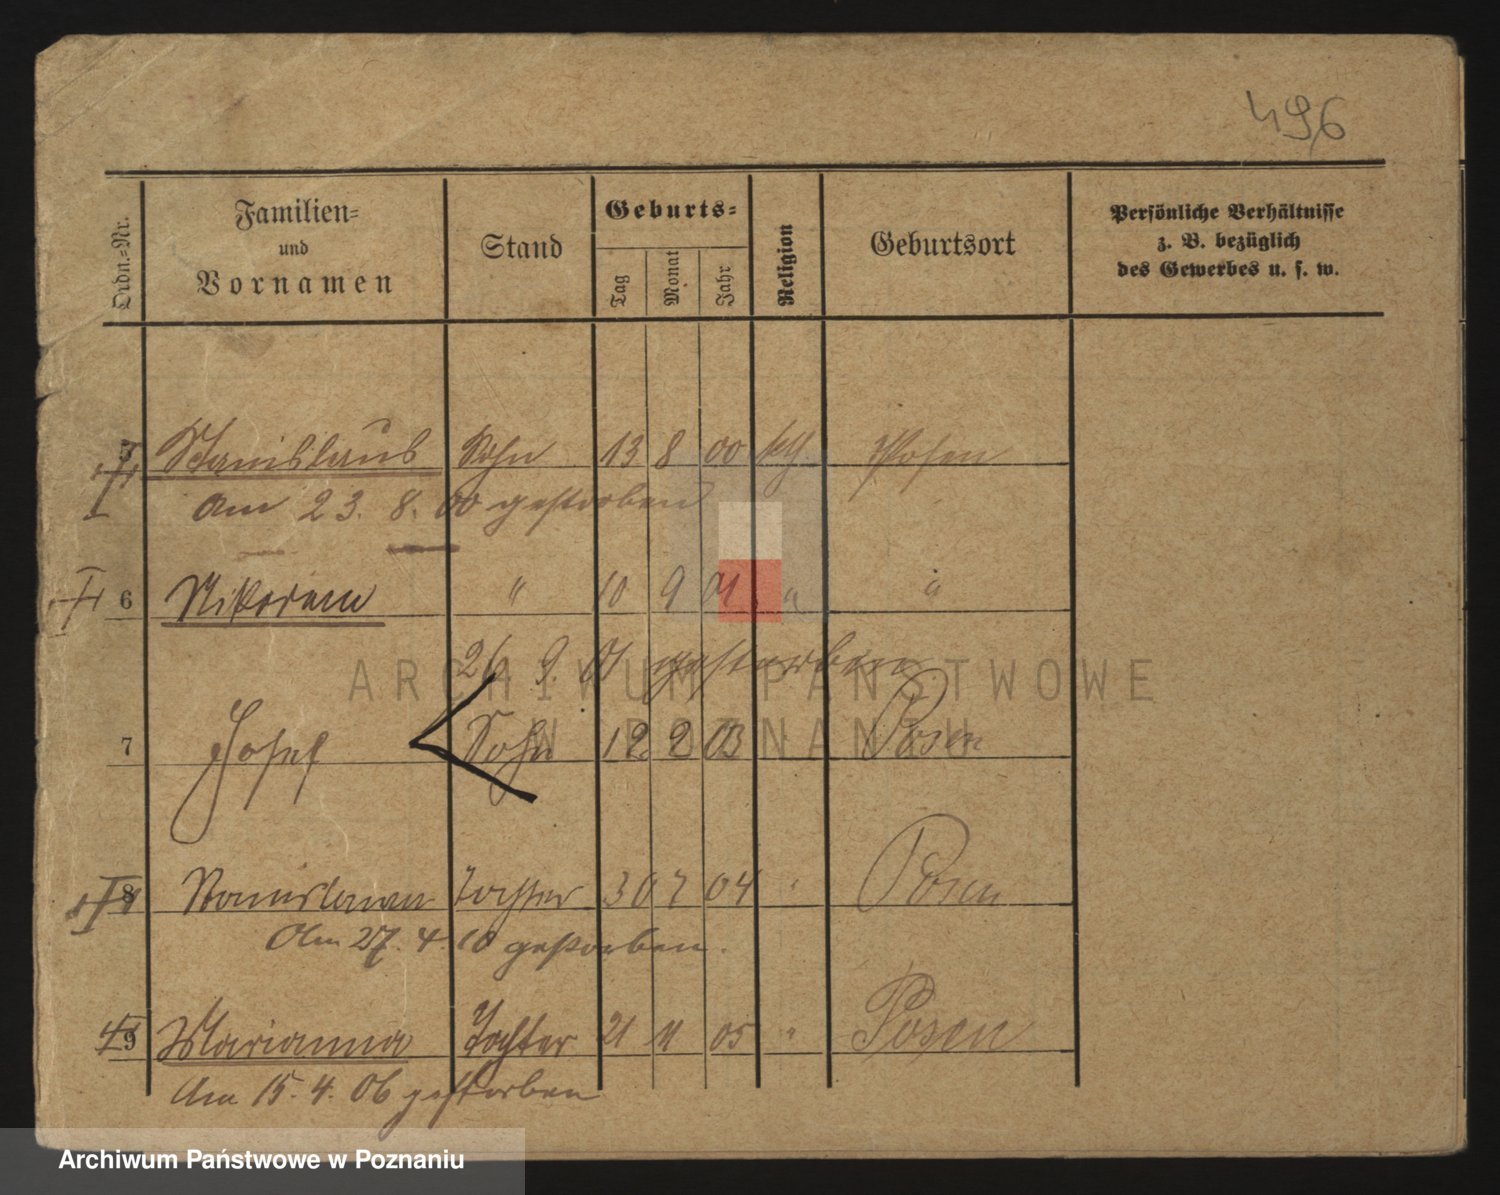 496
Ordn.-Nr.
Familien-
und
Vornamen
Stand
Geburts-
Tag
Monat
Jahr
Religion
Geburtsort
Persönliche Verhältnisse
z. B. bezüglich
des Gewerbes u. s. w.
5 Stanislaus Sohn 13 8 00 kth Posen
Am 23. 8. 00 gestorben
6 " 10 9 01 " "
26 9. 01 gestorben
ARCHIWUM PAŃSTWOWE
W POZNANIU
7 Josef Sohn 12 2 03 Posen
8 Stanislawa Tochter 30 7 04 " Posen
Am 27. 4. 10 gestorben.
9 Marianna Tochter 21 11 05 " Posen
Am 15. 4. 06 gestorben
Archiwum Państwowe w Poznaniu